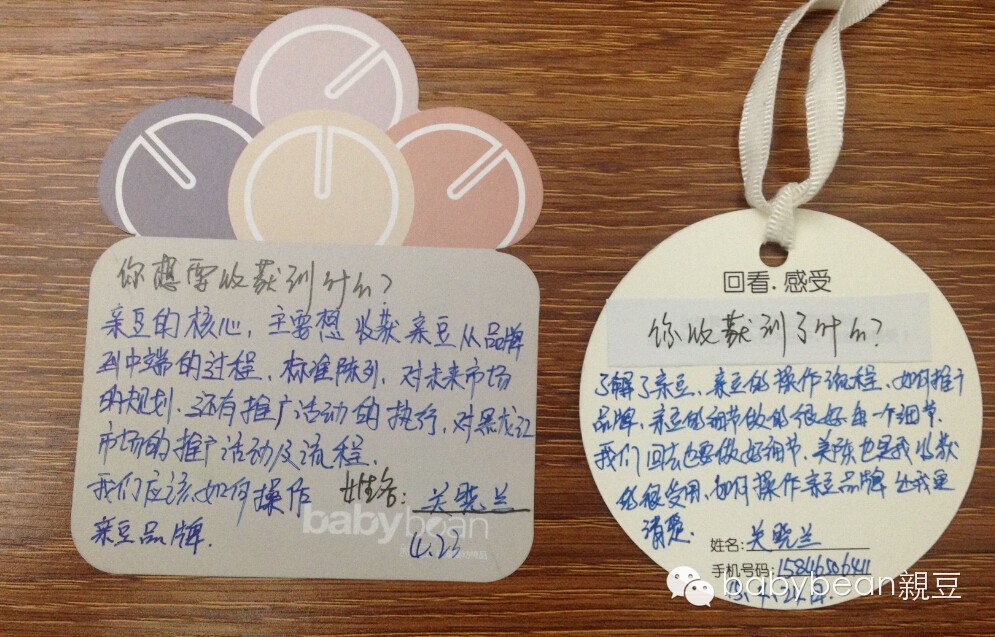 你想要收获到什么?
亲豆的核心，主要想收获亲豆从品牌
到中端的过程、标准陈列、对未来市场
的规划、还有推广活动的执行，对黑龙江
市场的推广活动及流程.
我们应该如何操作
亲豆品牌.
姓名: 关晓兰
babybean
4.23
回看.感受
你收获到了什么?
了解了亲豆、亲豆的操作流程、如何推广
品牌、亲豆的细节做的很好每一个细节.
我们回去也要做好细节、美陈也是我收获
的很受用、如何操作亲豆品牌 让我更
清楚.
姓名: 关晓兰
手机号码: 15846506411
babybean親豆